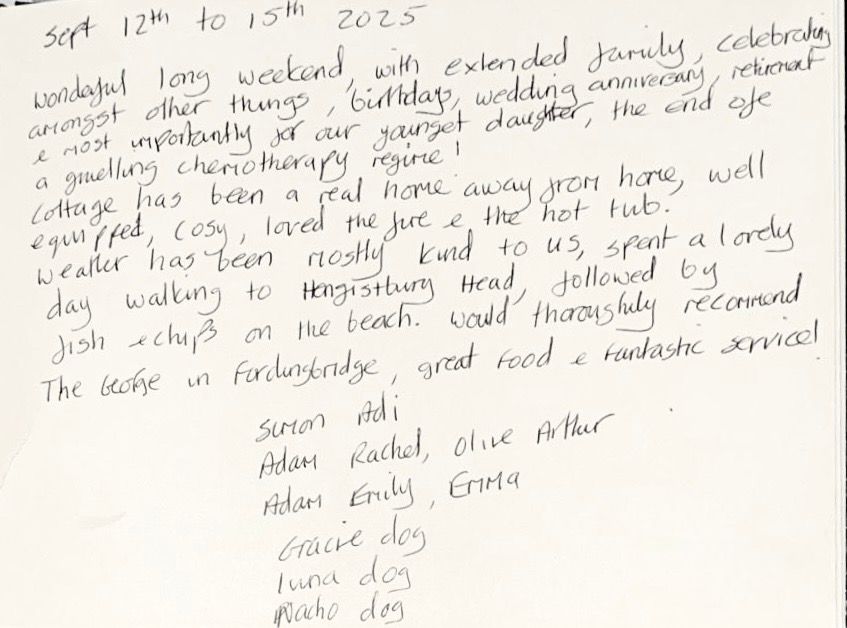 Sept 12th to 15th 2025
Wonderful long weekend, with extended family, celebrating
amongst other things, birthdays, wedding anniversary, retirement
e most importantly for our youngest daughter, the end ofe
a gruelling chemotherapy regime!
Cottage has been a real home away from home, well
equipped, cosy, loved the fire e the hot tub.
Weather has been mostly kind to us, spent a lovely
day walking to Hengistbury Head, followed by
fish e chips on the beach. Would thoroughly recommend
The George in Fordingbridge, great food e fantastic service!
Simon Adi
Adam Rachel, Olive Arthur
Adam Emily, Emma
Gracie dog
Luna dog
Nacho dog